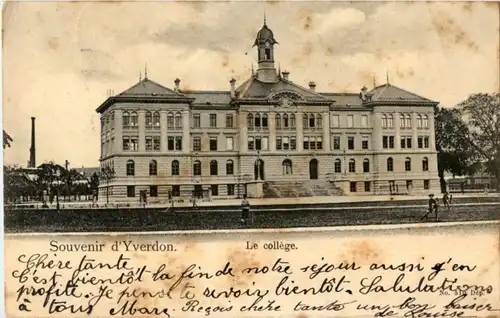 Souvenir d'Yverdon.
Le collège.
Chère tante
C'est bientôt la fin de notre séjour aussi j'en
profite. Je pense te revoir bientôt. Salutations
à tous Marc. Reçois chère tante un bon baiser
de Louise
No.